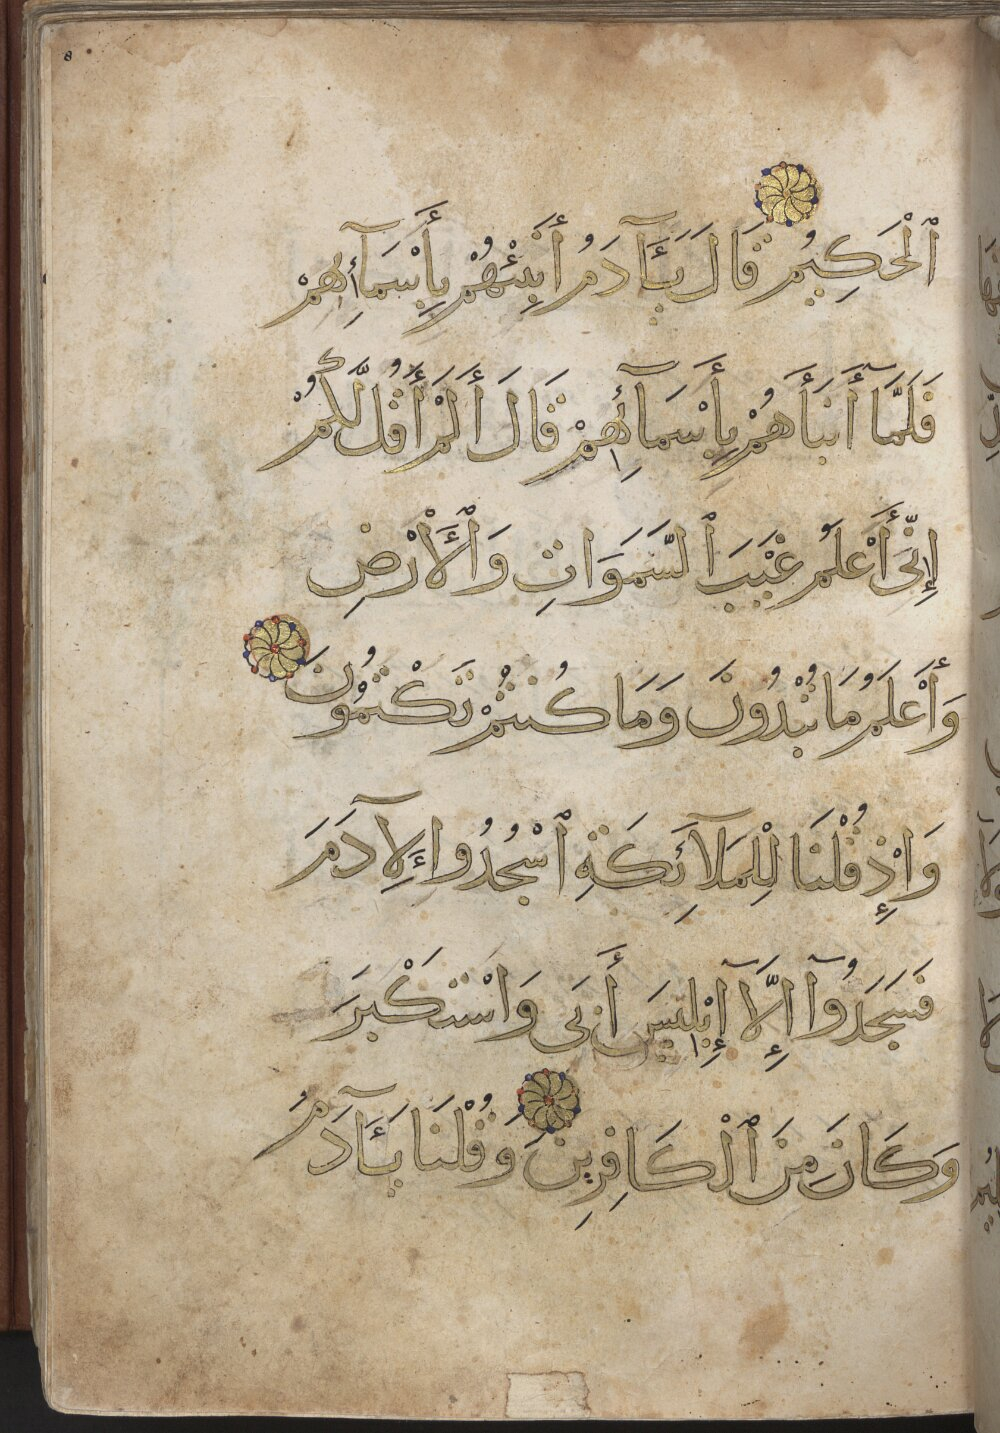 ٱلْحَكِيمُ قَالَ يَـَٔآدَمُ أَنۢبِئْهُمْ بِأَسْمَآئِهِمْ
فَلَمَّآ أَنۢبَأَهُمْ بِأَسْمَآئِهِمْ قَالَ أَلَمْ أَقُل لَّكُمْ
إِنِّىٓ أَعْلَمُ غَيْبَ ٱلسَّمَوَاتِ وَٱلْأَرْضِ
وَأَعْلَمُ مَا تُبْدُونَ وَمَا كُنتُمْ تَكْتُمُونَ
وَإِذْ قُلْنَا لِلْمَلَآئِكَةِ ٱسْجُدُوا لِآدَمَ
فَسَجَدُوٓا إِلَّآ إِبْلِيسَ أَبَى وَاسْتَكْبَرَ
وَكَانَ مِنَ ٱلْكَافِرِينَ وَقُلْنَا يَـَٔآدَمُ